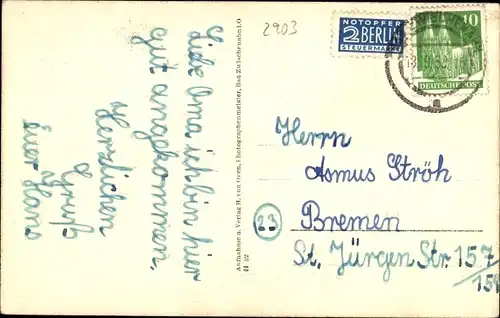 2903
Liebe Oma ich bin hier
gut angekommen.
Herzlichen
Gruß
Euer Hans
Aufnahme u. Verlag H. von Oven, Photographenmeister, Bad Zwischenahn i.O
44 22
NOTOPFER
2 BERLIN
STEUERMARKE
10
DEUTSCHE POST
a
Herrn
Asmus Ströh
23 Bremen
St. Jürgen Str. 157
/159